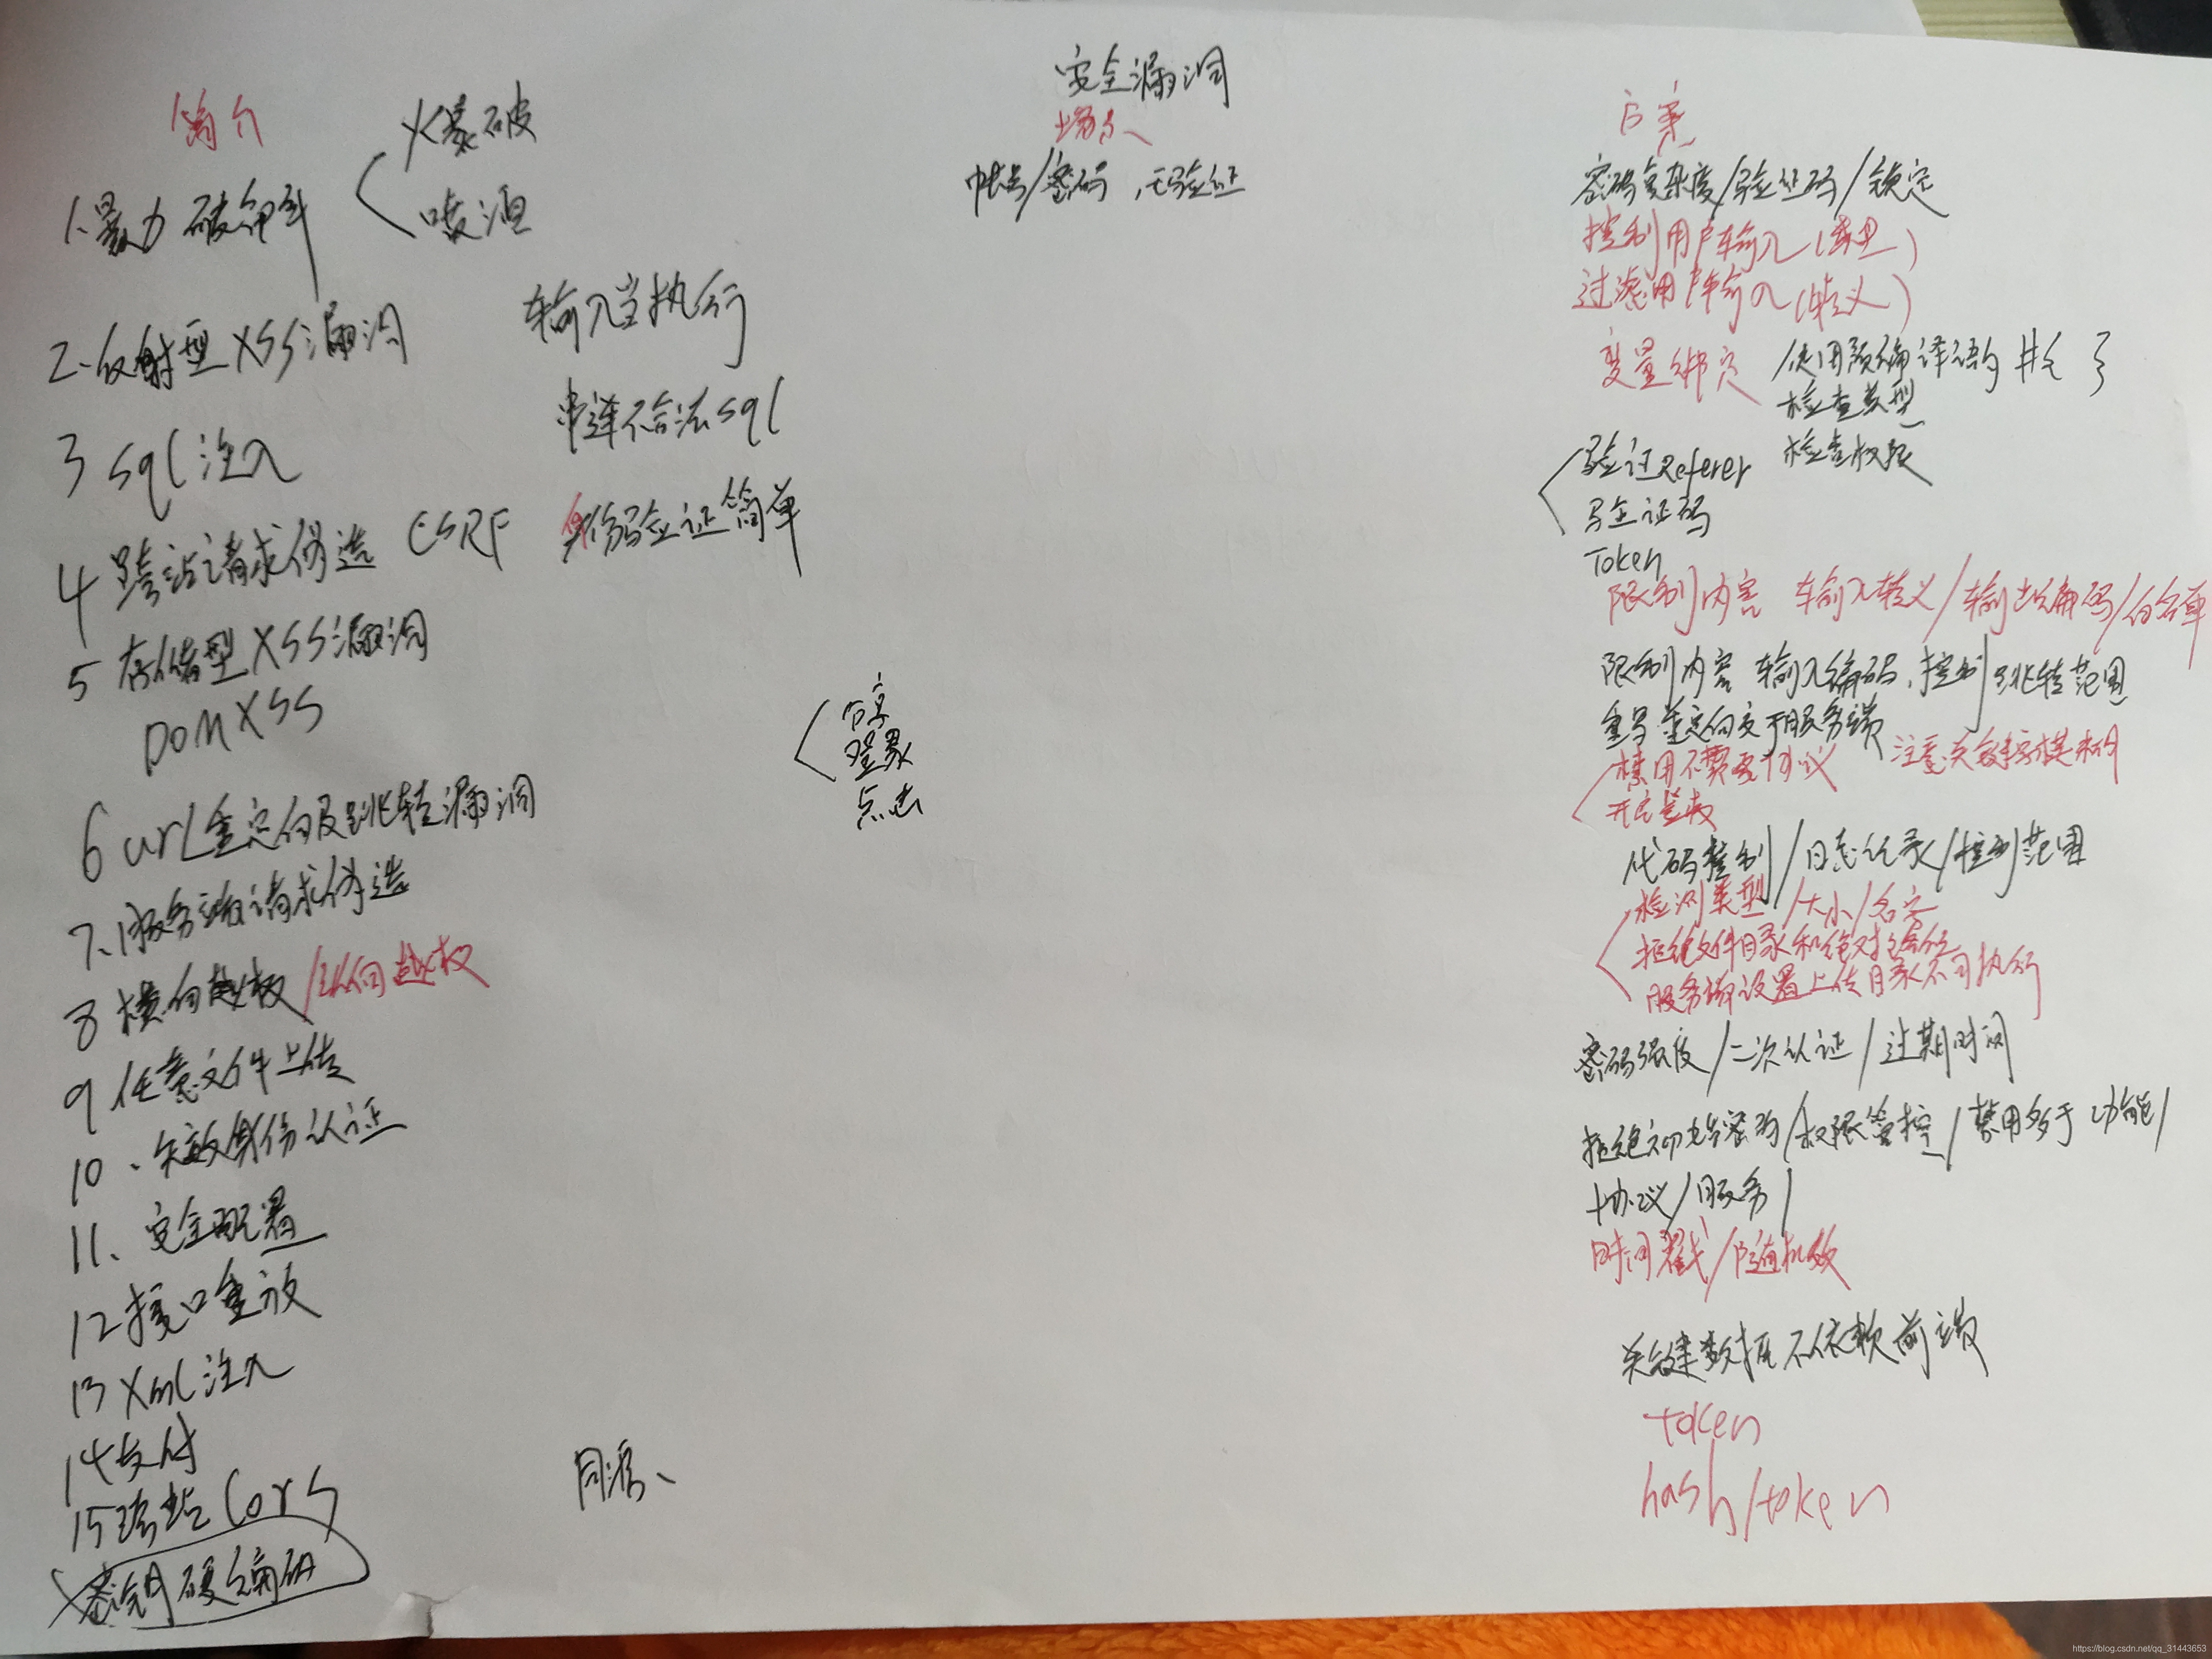 安全漏洞
简介
场景
方案
1.暴力破解
爆破
喷洒
帐号/密码，无验证
密码复杂度/验证码/锁定
2.反射型XSS漏洞
输入当执行
控制用户输入(类型)
过滤用户输入(转义)
3 sql注入
串连不合法sql
变量绑定
使用预编译语句 #{ }
检查类型
检查权限
4 跨站请求伪造 CSRF
身份验证简单
验证Referer
验证码
Token
5 存储型XSS漏洞
DOM XSS
限制内容 输入转义/输出编码/白名单
6 url重定向及跳转漏洞
分享
登录
点击
限制内容 输入编码，控制跳转范围
重写重定向交于服务端
7、服务端请求伪造
禁用不需要协议
注意关键字模糊
8 横向越权/纵向越权
代码控制/日志纪录/控制范围
9 任意文件上传
检测类型/大小/名字
拒绝文件目录和绝对路径
服务端设置上传目录不可执行
10、失效身份认证
密码强度/二次认证/过期时间
11、安全配置
拒绝初始密码/权限管控/禁用多于功能/
协议/服务/
12 接口重放
时间戳/随机数
13 Xml注入
14 支付
关键数据不依赖前端
15 跨站 Cors
同源、
token
hash/token
密钥硬编码
https://blog.csdn.net/qq_31443653